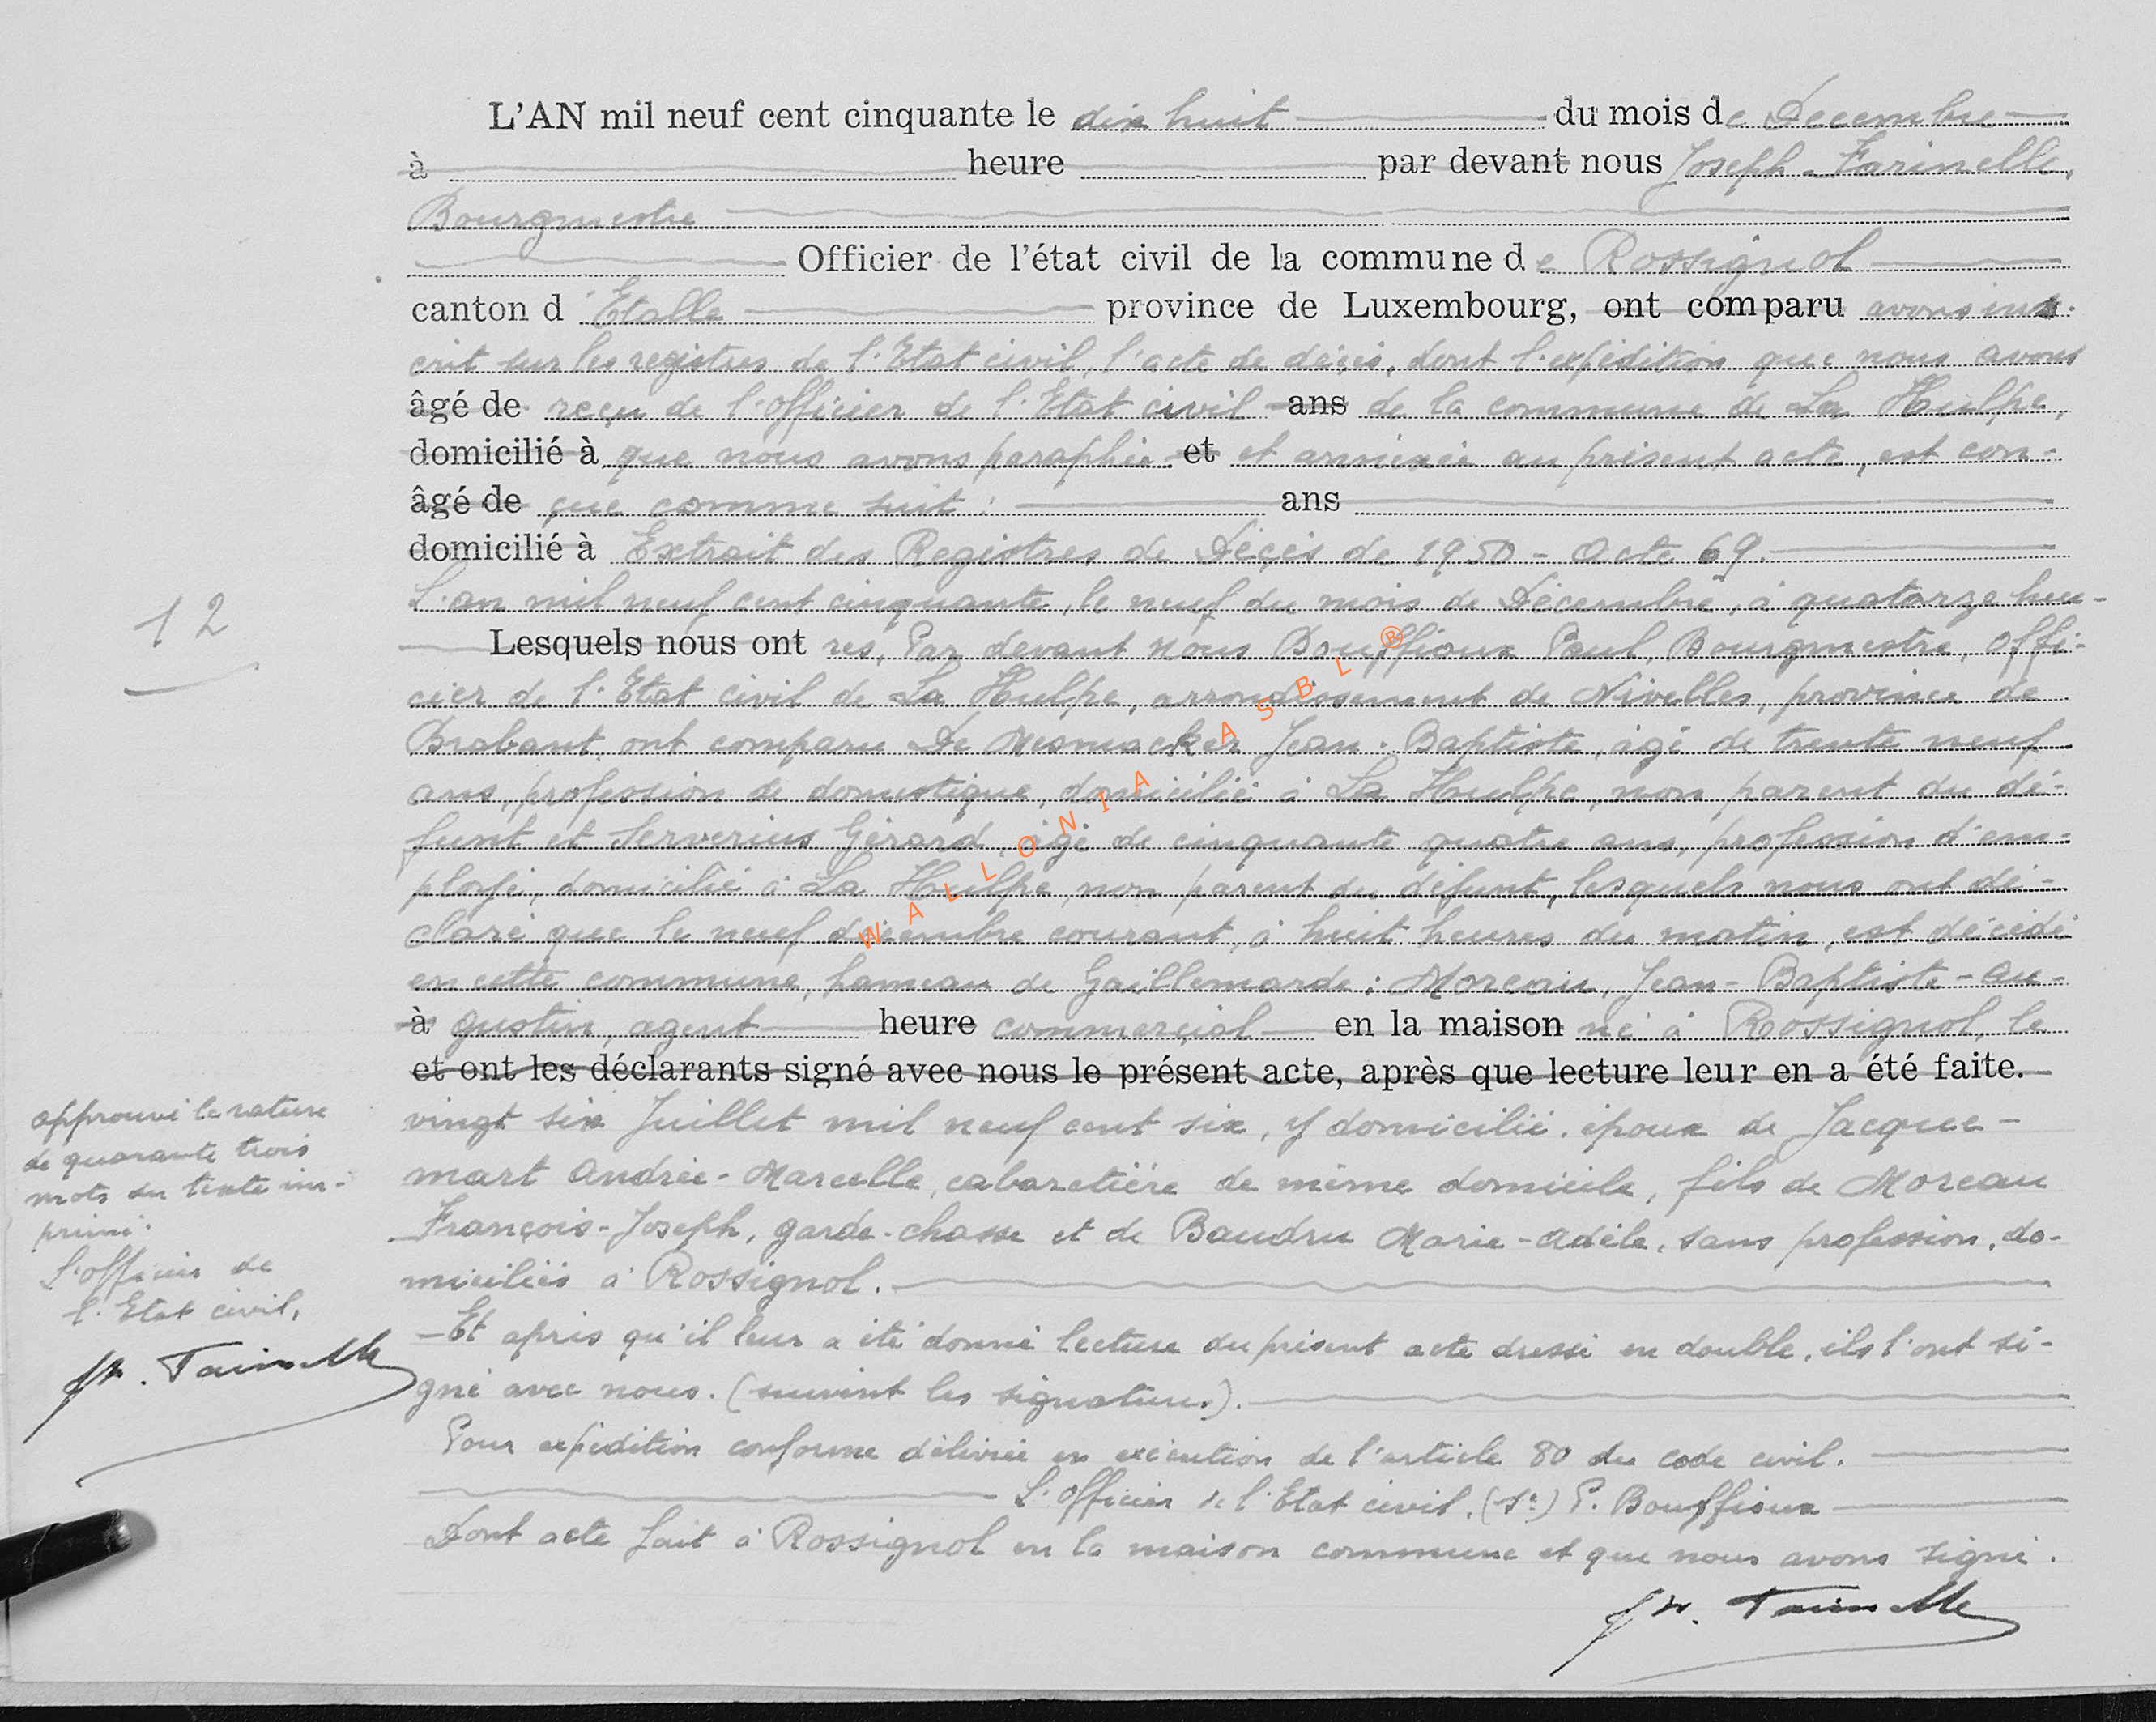 L'AN mil neuf cent cinquante le dix huit du mois de Décembre
à heure par devant nous Joseph Farinelle,
Bourgmestre
Officier de l'état civil de la commune de Rossignol
canton d'Etalle province de Luxembourg, ont comparu avons ins-
crit sur les registres de l'Etat civil, l'acte de décès, dont l'expédition que nous avons
âgé de reçu de l'officier de l'Etat civil ans de la commune de La Hulpe,
domicilié à que nous avons paraphée et et annexée au présent acte, est con-
âgé de çue comme suit : ans
domicilié à Extrait des Registres de Décès de 1950 - Acte 69.
L'an mil neuf cent cinquante, le neuf du mois de Décembre, à quatorze heu-
12
Lesquels nous ont res, Par devant nous Bouffioux Paul, Bourgmestre, offi-
cier de l'Etat civil de La Hulpe, arrondissement de Nivelles, province de
Brabant, ont comparu De Mesmacker Jean-Baptiste, âgé de trente neuf
ans, profession de domestique, domicilié à La Hulpe, non parent du dé-
funt et Serverius Gérard, âgé de cinquante quatre ans, profession d'em-
ployé, domicilié à La Hulpe, non parent du défunt, lesquels nous ont dé-
claré que le neuf décembre courant, à huit heures du matin, est décédé
en cette commune, hameau de Gaillemarde : Moreau, Jean-Baptiste-Au-
à gustin, agent heure commercial en la maison né à Rossignol, le
et ont les déclarants signé avec nous le présent acte, après que lecture leur en a été faite.
vingt six Juillet mil neuf cent six, y domicilié, époux de Jacque-
mart Andrée-Marcelle, cabaretière de même domicile, fils de Moreau
François-Joseph, garde-chasse et de Baudru Marie-Adèle, sans profession, do-
miciliés à Rossignol.
- Et après qu'il leur a été donné lecture du présent acte dressé en double, ils l'ont si-
gné avec nous. (suivent les signatures).
Pour expédition conforme délivrée en exécution de l'article 80 du code civil.
L'officier de l'Etat civil, (sé) P. Bouffioux
Dont acte fait à Rossignol en la maison commune et que nous avons signé.
Jh. Farinelle
approuvé la rature
de quarante trois
mots du texte im-
primé.
L'officier de
l'Etat civil,
Jh. Farinelle
WALLONIA ASBL ®